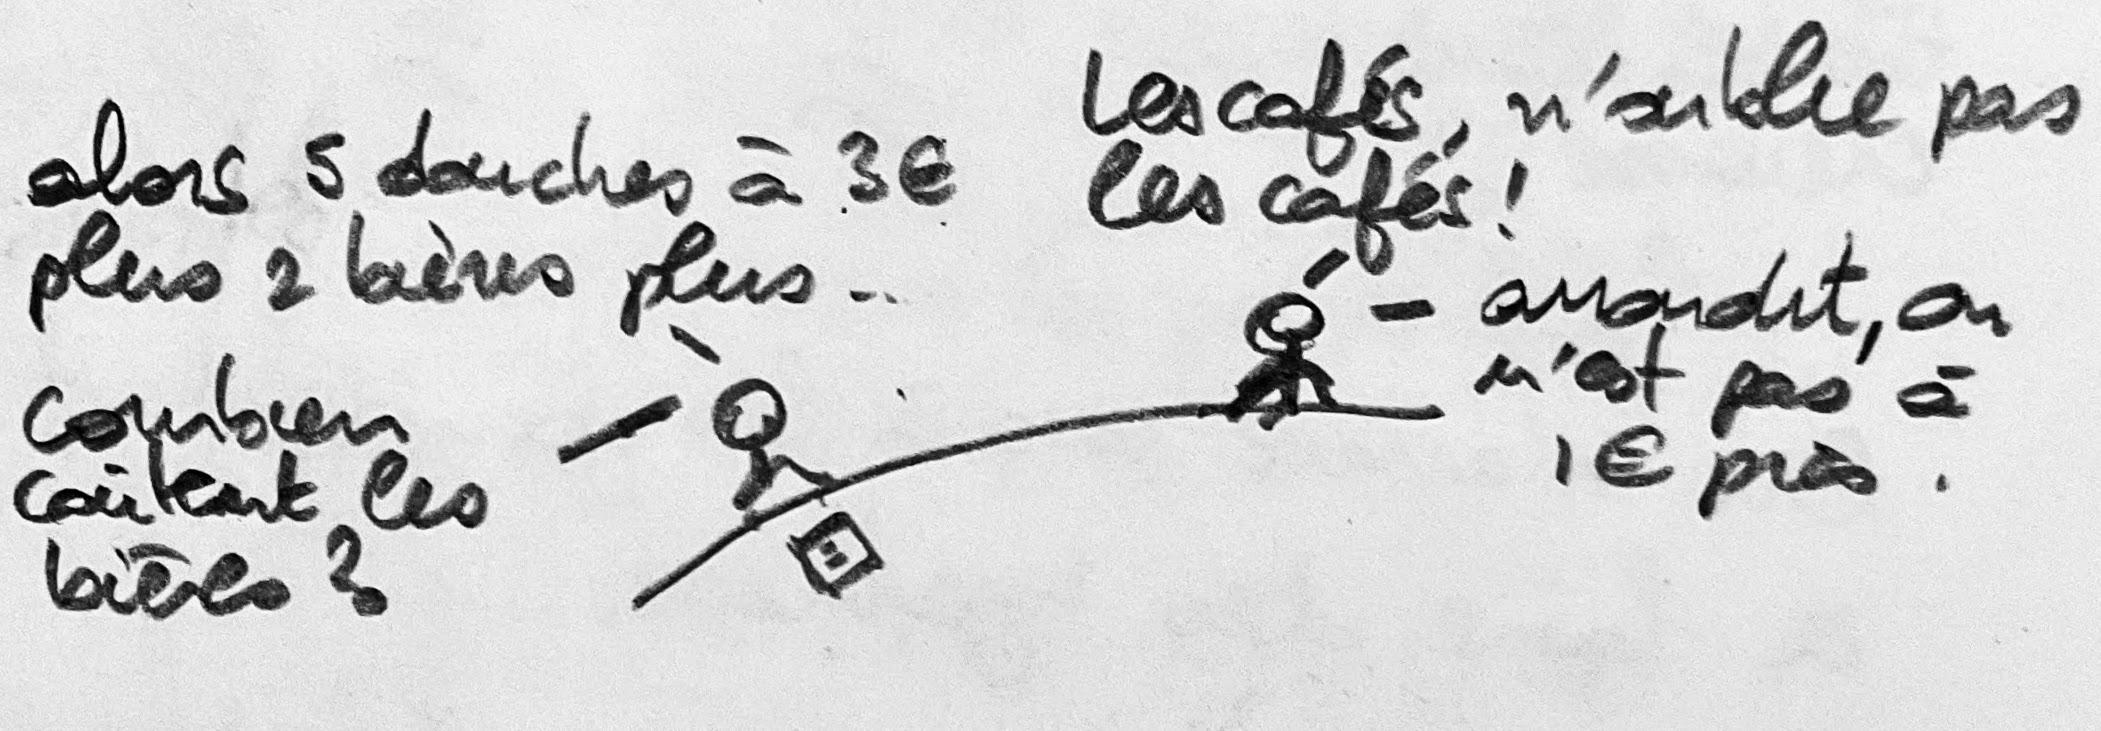 alors 5 douches à 3€
plus 2 bières plus..
combien
coûtent les
bières ?
Les cafés, n'oublie pas
les cafés !
arrondit, on
n'est pas à
1€ près.